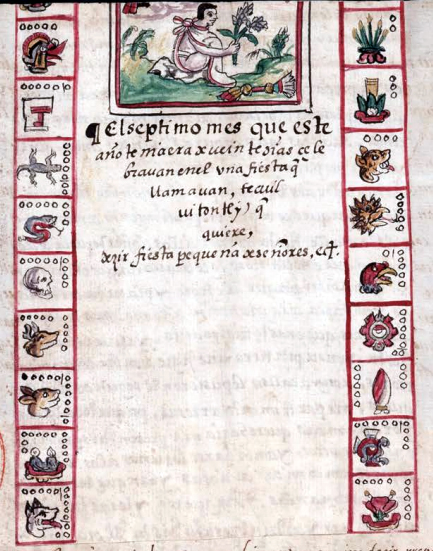 ¶ El septimo mes que este
año tenia era de veinte dias çele
bravan enel vna fiesta q̃
llamavan, tecuil
uitontly) q̃
quiere,
dezir fiesta pequeña de señores, ect.